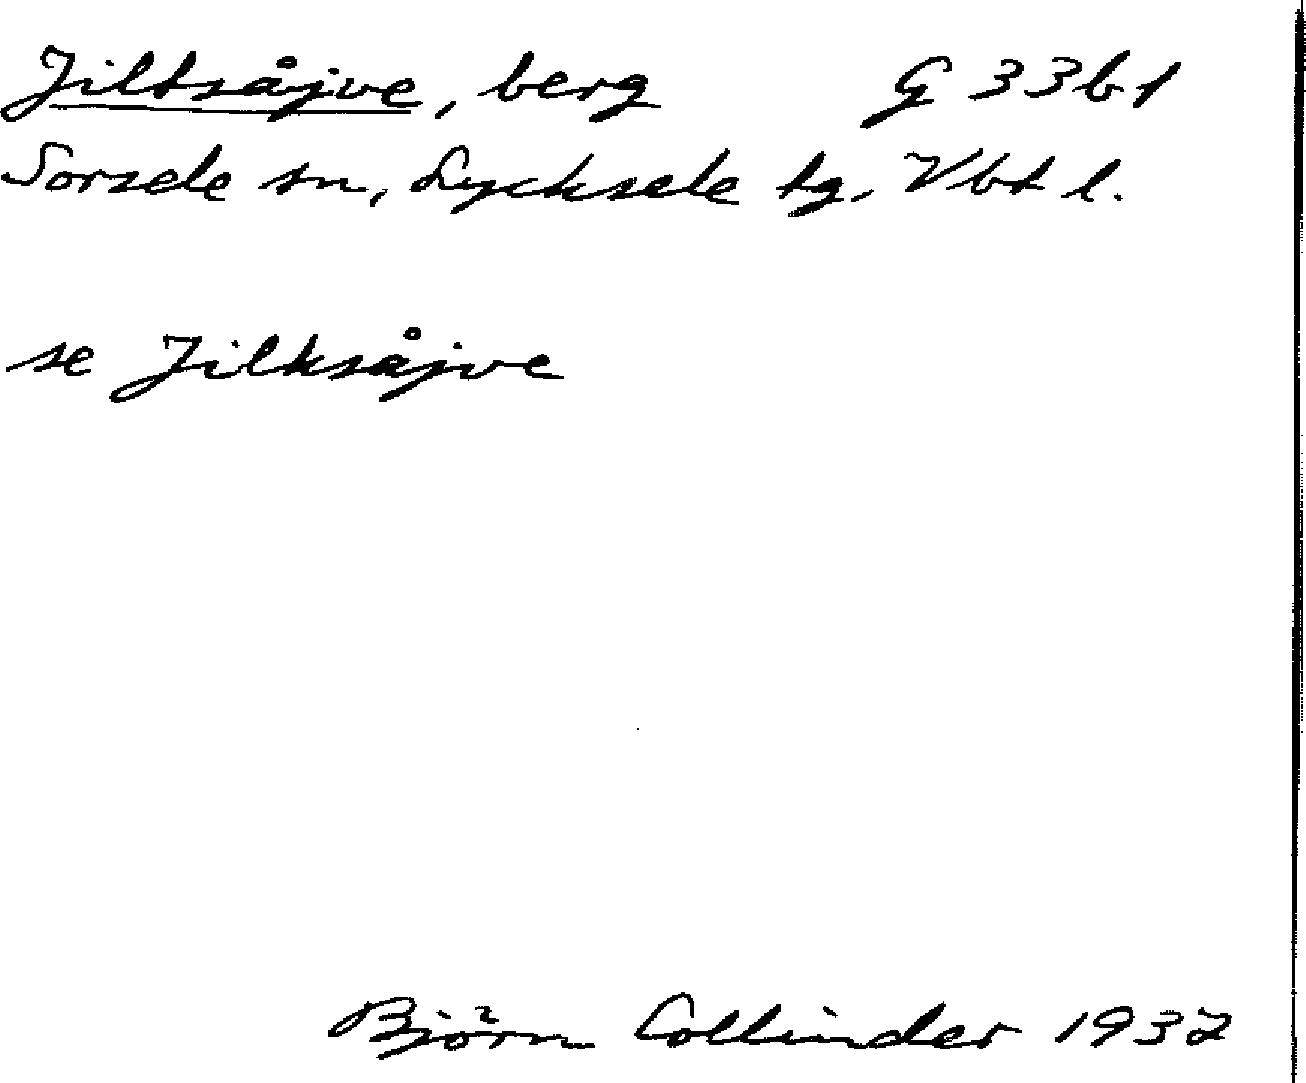 Jiltsåjve, berg G 33b1
Sorsele sn, Lycksele tg, Vbt l.
se Jilksåjve
Björn Collinder 1932